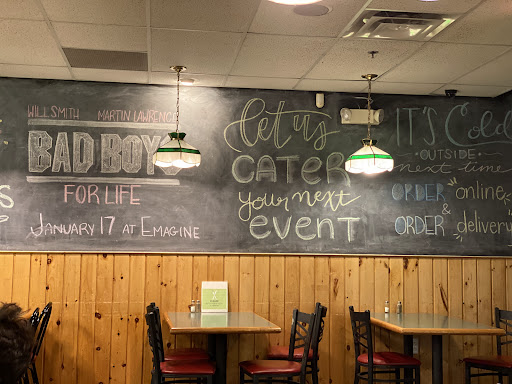 WILL SMITH MARTIN LAWRENCE
BAD BOYS
FOR LIFE
JANUARY 17 AT EMAGINE
let us
CATER
your next
EVENT
IT'S Cold
OUTSIDE
next time
ORDER online
&
ORDER delivery